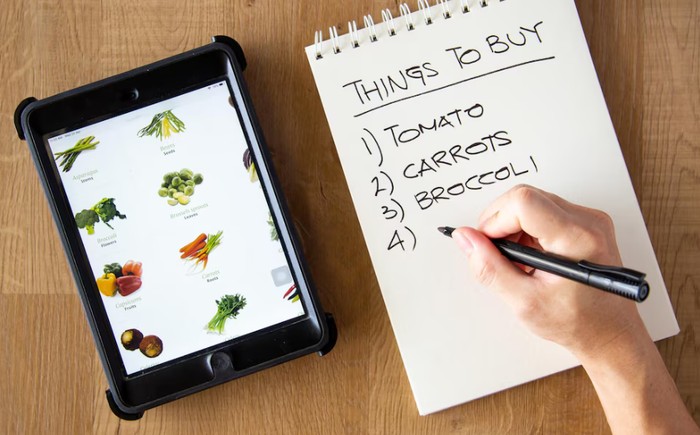 Asparagus
Stems
Beans
Seeds
Broccoli
Flowers
Brussels sprouts
Leaves
Capsicums
Fruits
Carrots
Roots
THINGS TO BUY
1) TOMATO
2) CARROTS
3) BROCCOLI
4)